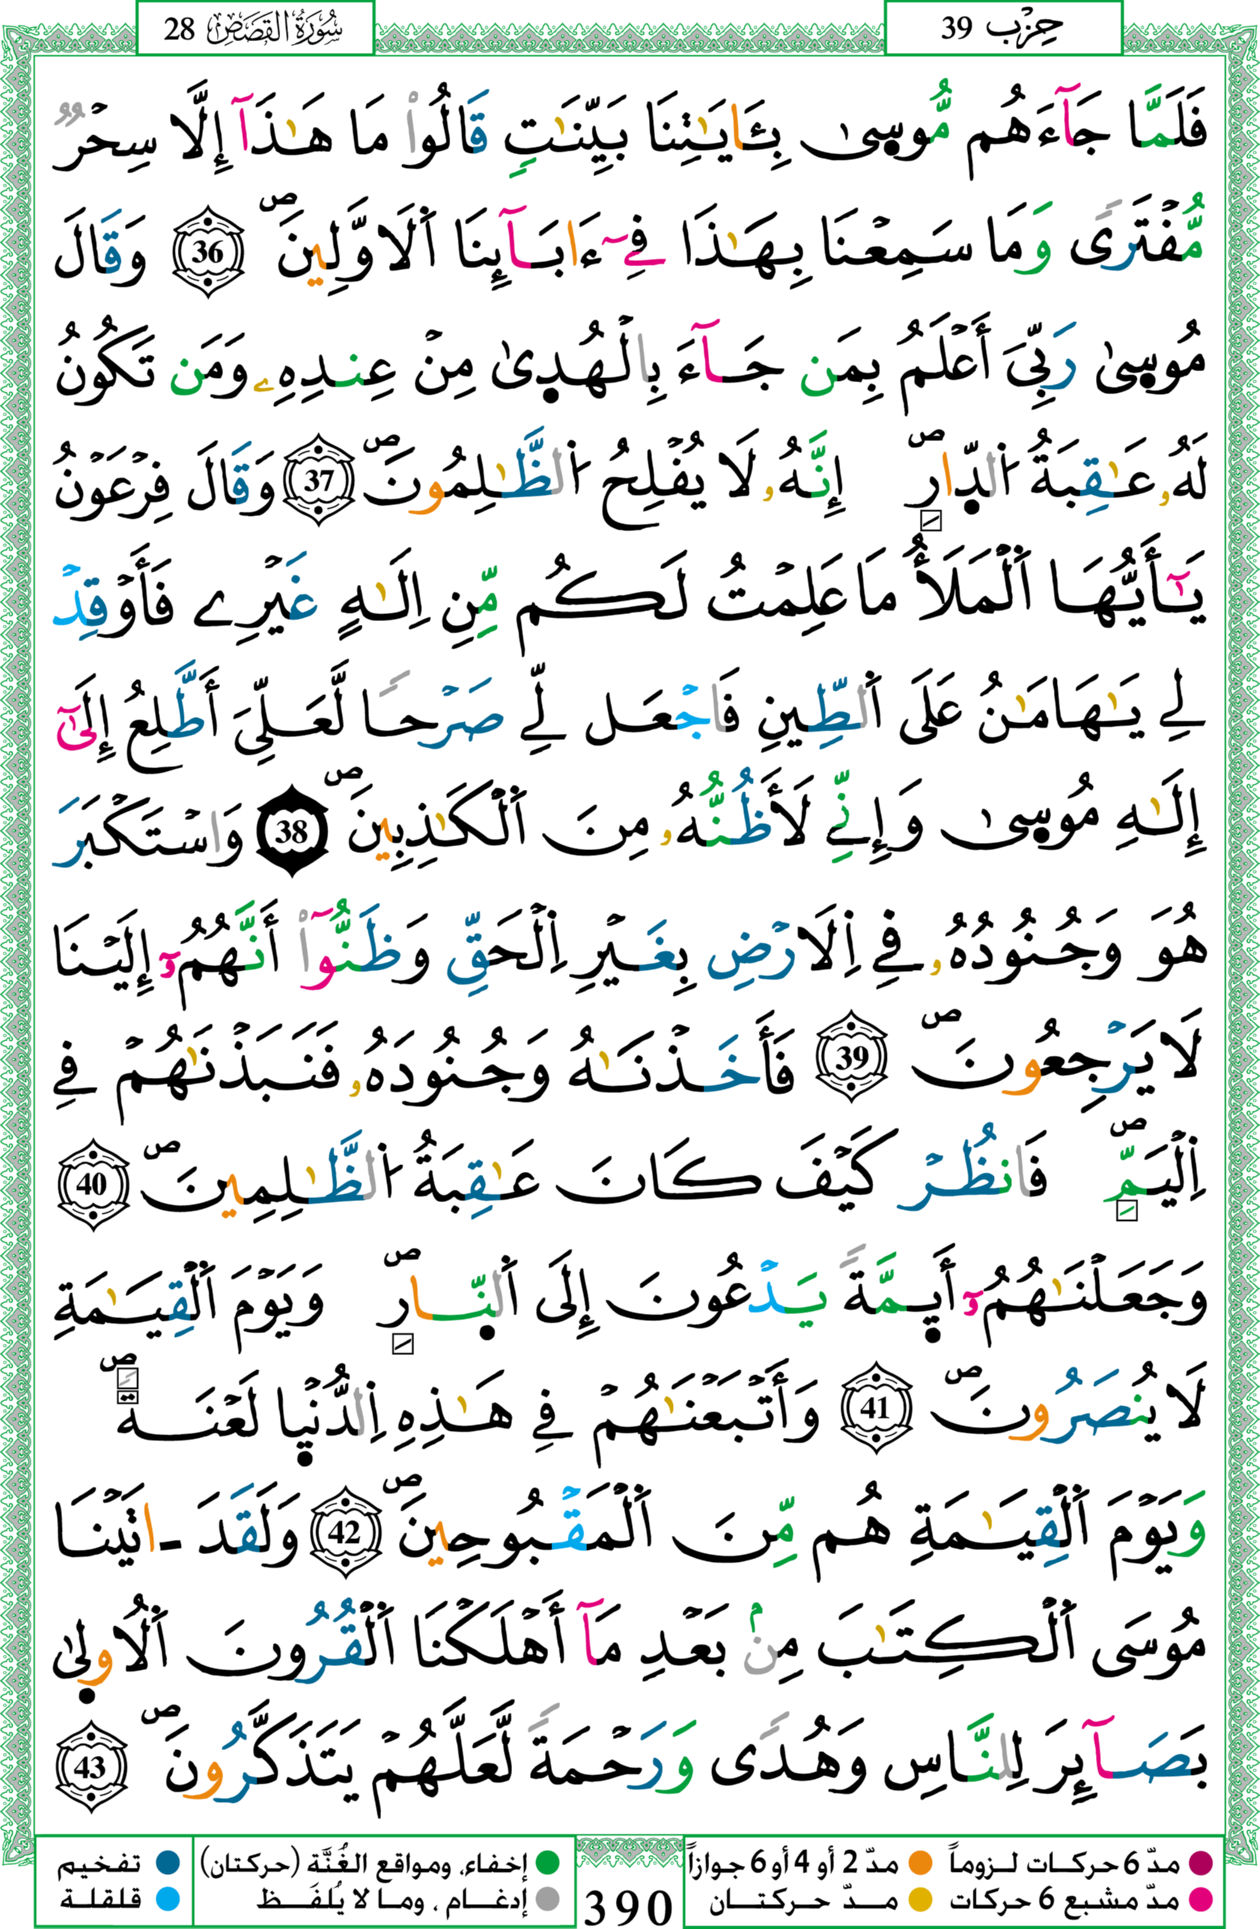 حِزْب 39
سُورَةُ القَصَصِ 28
فَلَمَّا جَآءَهُم مُّوسِىٰ بِـَٔايَٰتِنَا بَيِّنَٰتٖ قَالُوا۟ مَا هَٰذَآ إِلَّا سِحْرٞ
مُّفْتَرٗى وَمَا سَمِعْنَا بِهَٰذَا فِےٓ ءَابَآئِنَا اَ۬لَاوَّلِينَۖ 36 وَقَالَ
مُوسِىٰ رَبِّىَ أَعْلَمُ بِمَن جَآءَ بِالْهُدِىٰ مِنْ عِندِهِۦ وَمَن تَكُونُ
لَهُۥ عَٰقِبَةُ اُ۬لدِّارِۖ إِنَّهُۥ لَا يُفْلِحُ اُ۬لظَّٰلِمُونَۖ 37 وَقَالَ فِرْعَوْنُ
يَٰٓأَيُّهَا اَ۬لْمَلَأُ مَا عَلِمْتُ لَكُم مِّنِ اِلَٰهٍ غَيْرِے فَأَوْقِدْ
لِے يَٰهَامَٰنُ عَلَى اَ۬لطِّينِ فَاجْعَل لِّے صَرْحاٗ لَّعَلِّىَ أَطَّلِعُ إِلَىٰٓ
إِلَٰهِ مُوسِىٰ وَإِنِّے لَأَظُنُّهُۥ مِنَ اَ۬لْكَٰذِبِينَۖ 38 وَاسْتَكْبَرَ
هُوَ وَجُنُودُهُۥ فِے اِ۬لَارْضِ بِغَيْرِ اِ۬لْحَقِّ وَظَنُّوٓا۟ أَنَّهُمُۥٓ إِلَيْنَا
لَا يَرْجِعُونَۖ 39 فَأَخَذْنَٰهُ وَجُنُودَهُۥ فَنَبَذْنَٰهُمْ فِے
اِ۬لْيَمِّۖ فَانظُرْ كَيْفَ كَانَ عَٰقِبَةُ اُ۬لظَّٰلِمِينَۖ 40
وَجَعَلْنَٰهُمُۥٓ أَيِمَّةٗ يَدْعُونَ إِلَى اَ۬لنِّارِۖ وَيَوْمَ اَ۬لْقِيَٰمَةِ
لَا يُنصَرُونَۖ 41 وَأَتْبَعْنَٰهُمْ فِے هَٰذِهِ اِ۬لدُّنْيِا لَعْنَةٗۖ
وَيَوْمَ اَ۬لْقِيَٰمَةِ هُم مِّنَ اَ۬لْمَقْبُوحِينَۖ 42 وَلَقَدَ ـ اتَيْنَا
مُوسَى اَ۬لْكِتَٰبَ مِنۢ بَعْدِ مَآ أَهْلَكْنَا اَ۬لْقُرُونَ اَ۬لُاولِىٰ
بَصَآئِرَ لِلنَّاسِ وَهُدٗى وَرَحْمَةٗ لَّعَلَّهُمْ يَتَذَكَّرُونَۖ 43
مدّ 6 حركات لـزوماً مدّ 2 أو 4 أو 6 جوازاً إخفاء، ومواقع الغُنَّة (حركتان) تفخيم
مدّ مشبع 6 حركات مدّ حركتان إدغام ، وما لا يُلفَظ قلقلة
390